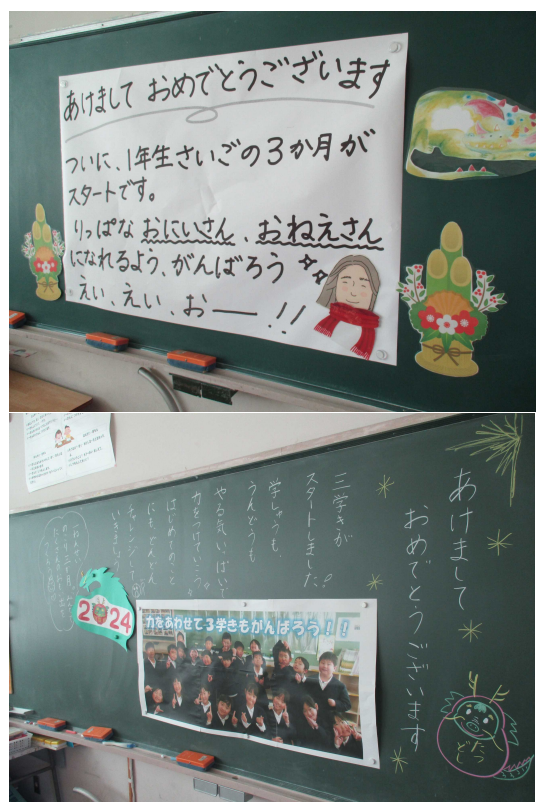 あけまして おめでとうございます
ついに、1年生さいごの3か月が
スタートです。
りっぱな おにいさん、おねえさん
になれるよう、がんばろう
えい、えい、おー!!
あけまして
おめでとうございます
三学きが
スタートしました
学しゅうも、
うんどうも
やる気いっぱい!
力をつけていこう
はじめてのこと
にも、どんどん
チャレンジして
いきましょう
2024
力をあわせて3学きもがんばろう!!
たつ
どし